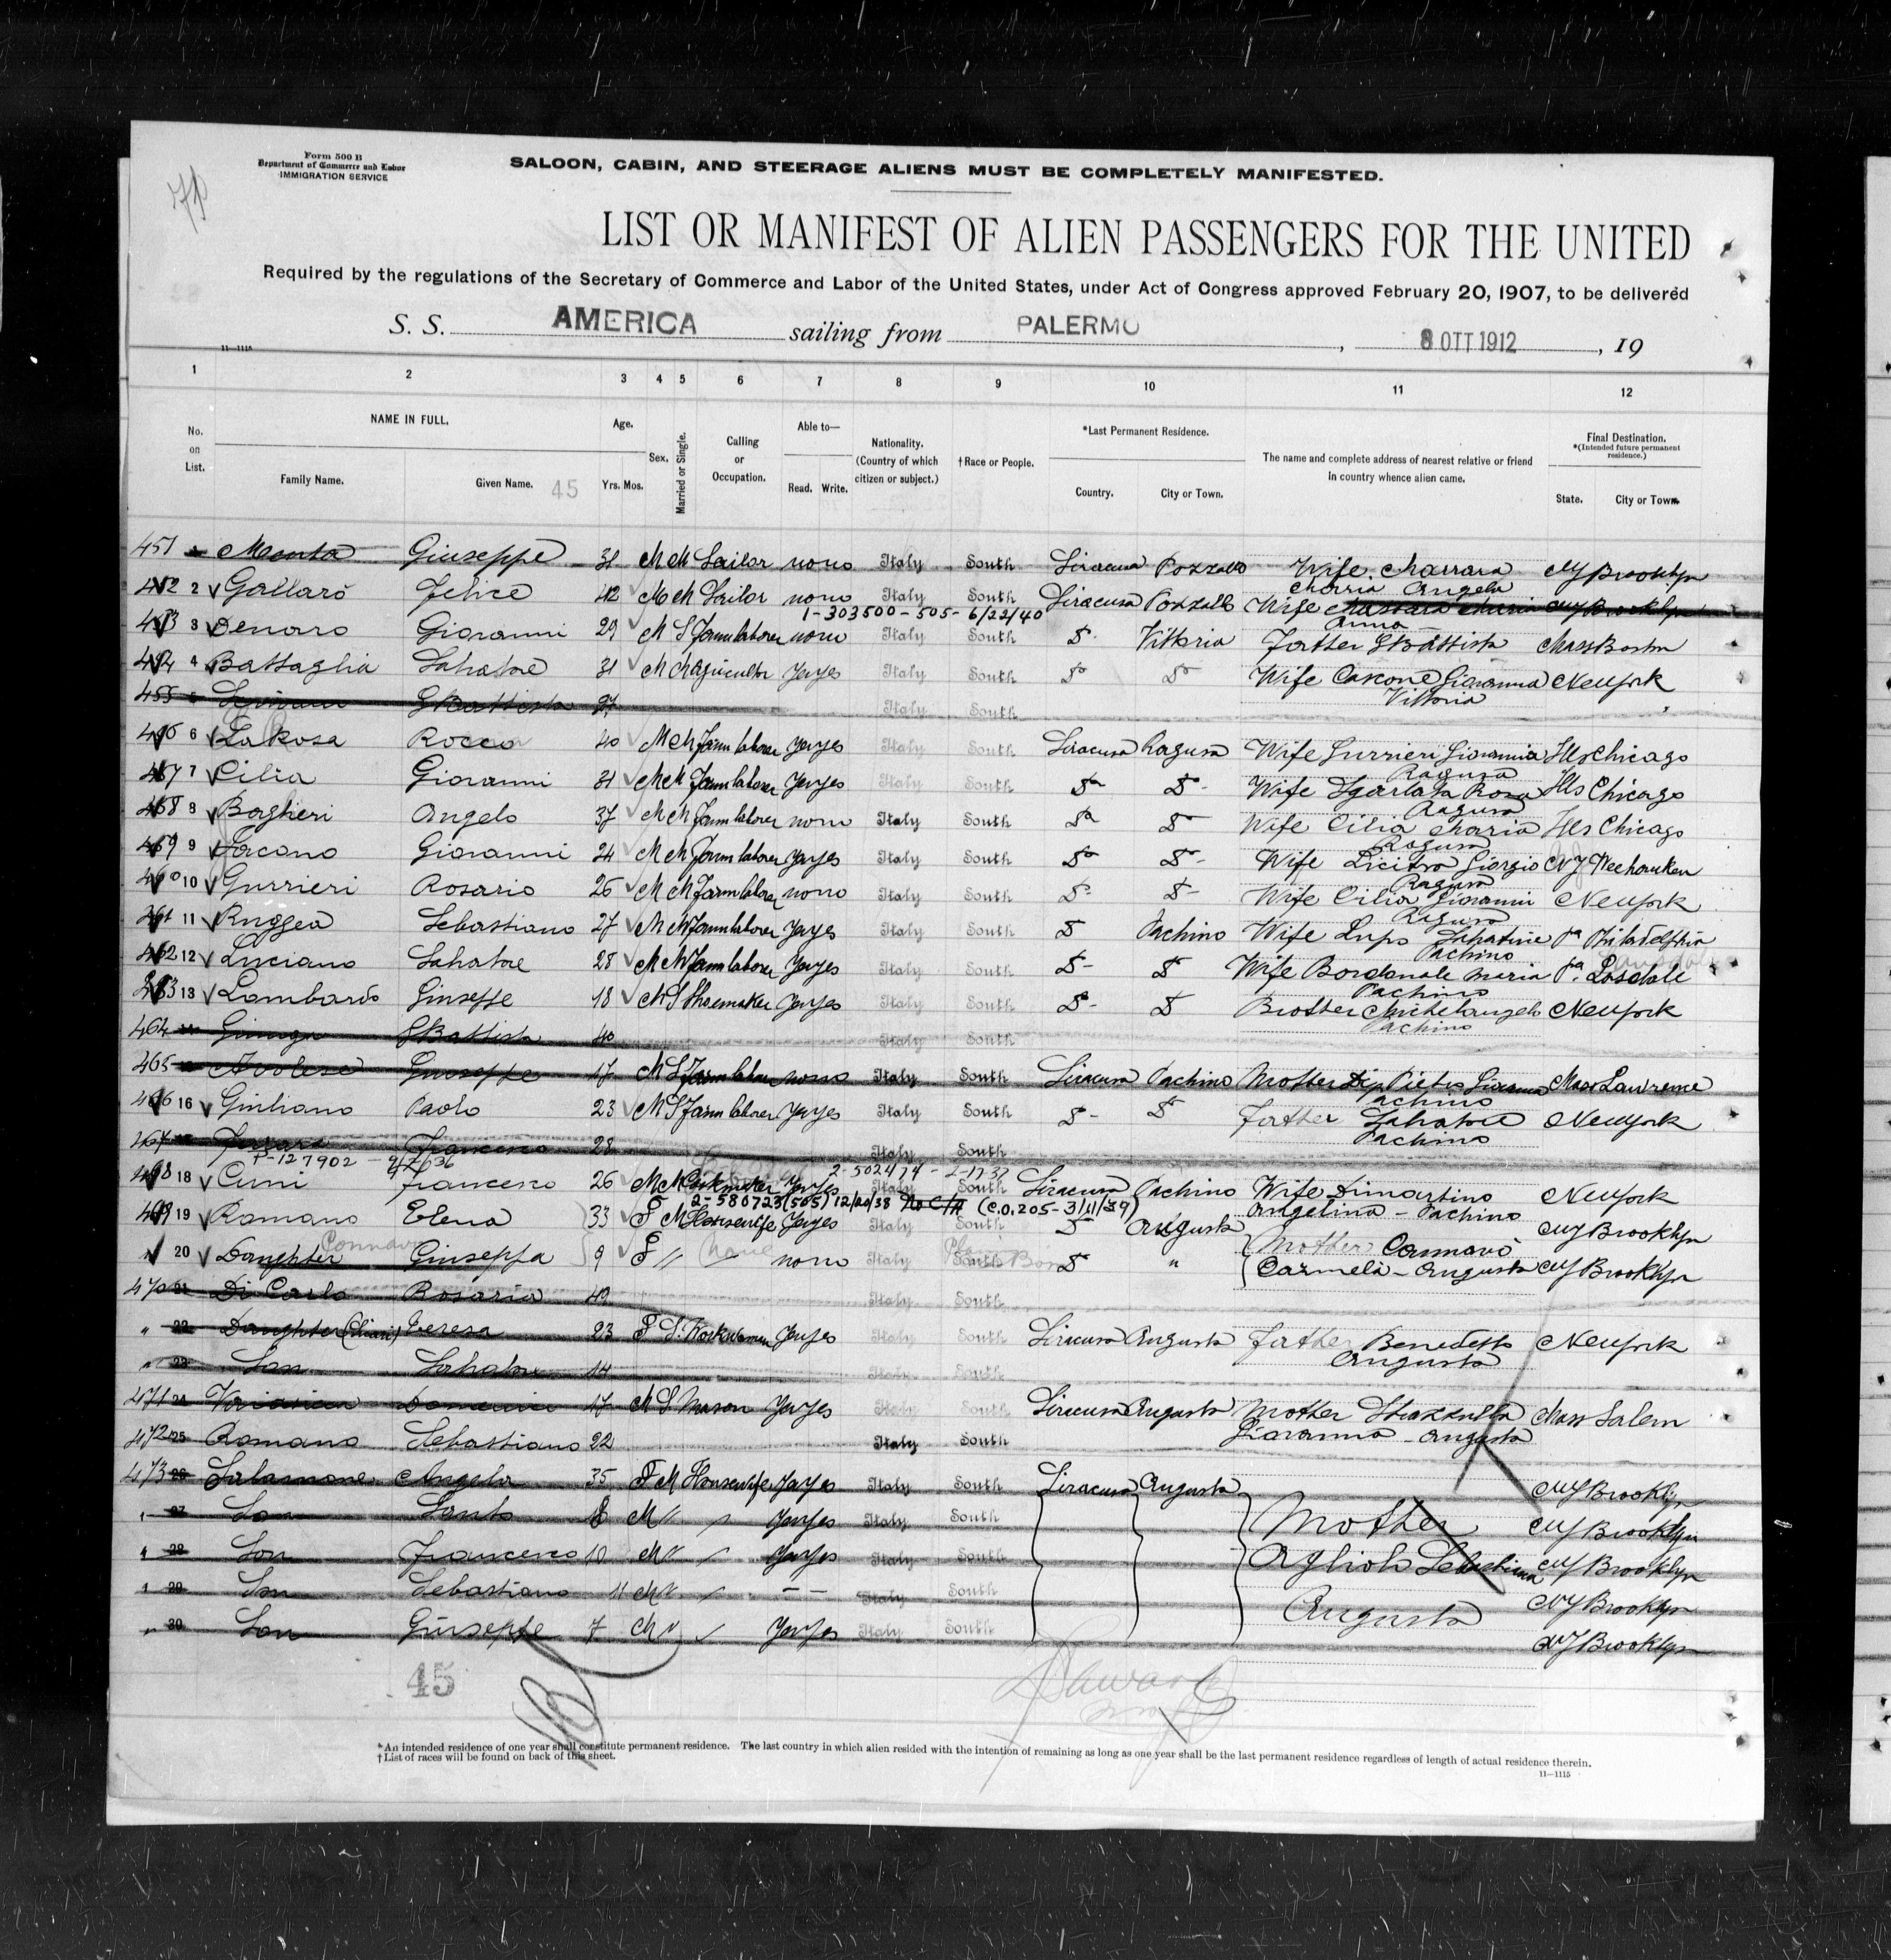 Form 500 B
Department of Commerce and Labor
IMMIGRATION SERVICE
SALOON, CABIN, AND STEERAGE ALIENS MUST BE COMPLETELY MANIFESTED.
LIST OR MANIFEST OF ALIEN PASSENGERS FOR THE UNITED
Required by the regulations of the Secretary of Commerce and Labor of the United States, under Act of Congress approved February 20, 1907, to be delivered
S. S. AMERICA sailing from PALERMO, 8 OTT 1912, 19
11—1115
1 2 3 4 5 6 7 8 9 10 11 12
No. on List.
NAME IN FULL.
Family Name. Given Name. 45
Age.
Yrs. Mos.
Sex.
Married or Single.
Calling or Occupation.
Able to—
Read. Write.
Nationality. (Country of which citizen or subject.)
†Race or People.
*Last Permanent Residence.
Country. City or Town.
The name and complete address of nearest relative or friend in country whence alien came.
Final Destination.
*(Intended future permanent residence.)
State. City or Town.
451 Giuseppe 31 M M Sailor no no Italy South Siracusa Pozzallo Wife NY Brooklyn
Maria Angela
452 2 Gallaro Felice 42 M M Sailor no no Italy South Siracusa Pozzallo Wife
1-303500-505-6/22/40
Anna
453 3 Denaro Giovanni 29 M S Farm laborer no no Italy South D Vittoria Father GBattista Mass Boston
454 4 Battaglia Salvatore 31 M M Agricultor Yes yes Italy South D D Wife Cascone Giovanna New York
Vittoria
455 5 GBattista 27 Italy South
456 6 LaRosa Rocco 40 M M Farm laborer Yes yes Italy South Siracusa Ragusa Wife Gurrieri Giovannia Ills Chicago
Ragusa
457 7 Cilia Giovanni 31 M M Farm laborer Yes yes Italy South D D Wife Sgarlata Rosa Ills Chicago
Ragusa
458 8 Boghieri Angelo 37 M M Farm laborer no no Italy South D D Wife Cilia Maria Ills Chicago
Ragusa
459 9 Jacono Giovanni 24 M M Farm laborer Yes yes Italy South D D Wife Licitra Giorgio NJ Weehawken
Ragusa
460 10 Gurrieri Rosario 26 M M Farm laborer no no Italy South D D Wife Cilia Giovanni New York
Ragusa
461 11 Ruggea Sebastiano 27 M M Farm laborer Yes yes Italy South D Pachino Wife Lupo Salvatrice Pa Philadelphia
Pachino
462 12 Luciano Salvatore 28 M M Farm laborer Yes yes Italy South D D Wife Bordonale Maria Pa
Pachino
463 13 Lombardo Giuseppe 18 M S Shoemaker Yes yes Italy South D D Brother Michelangelo New York
Pachino
464 GBattista 40 Italy South
465 Giuseppe 17 M S Farm laborer no no Italy South Siracusa Pachino Mother Di Pietro Giovanna Mass Lawrence
Pachino
466 16 Giuliano Paolo 23 M S Farm laborer Yes yes Italy South D D Father Salvatore New York
Pachino
467 Francesco 28 Italy South
2-502474 - 2-17-37
468 18 Cumi Francesco 26 M M Yes yes Italy South Siracusa Pachino Wife Dimartino New York
Angelina - Pachino
2-580723(505) 12/20/38 No C/A (C.O. 205-3/11/39)
469 19 Romano Elena 33 F M Housewife Yes yes Italy South D Augusta Mother Cannavò NY Brooklyn
" 20 Daughter Giuseppa 9 F " no no South D " Carmela - Augusta NY Brooklyn
470 21 Di Carlo Rosaria 49 Italy South
" 22 Daughter Teresa 23 F S Yes yes Italy South Siracusa Augusta Father Benedetto New York
Augusta
" 23 Son Salvatore 14 Italy South
471 24 17 M S Mason Yes yes Italy South Siracusa Augusta Mother Mass Salem
Giovanna - Augusta
472 25 Romano Sebastiano 22 Italy South
473 26 Salamone Angela 35 F M Housewife Yes yes Italy South Siracusa Augusta NY Brooklyn
" 27 Son Santo 8 M " Yes yes Italy South Mother NY Brooklyn
" 28 Son Francesco 10 M " Yes yes Italy South Sebastiana NY Brooklyn
" 29 Son Sebastiano 11 M " — — Italy South Augusta NY Brooklyn
" 30 Son Giuseppe 7 M " Yes yes Italy South NY Brooklyn
45
*An intended residence of one year shall constitute permanent residence. The last country in which alien resided with the intention of remaining as long as one year shall be the last permanent residence regardless of length of actual residence therein.
†List of races will be found on back of this sheet.
11—1115